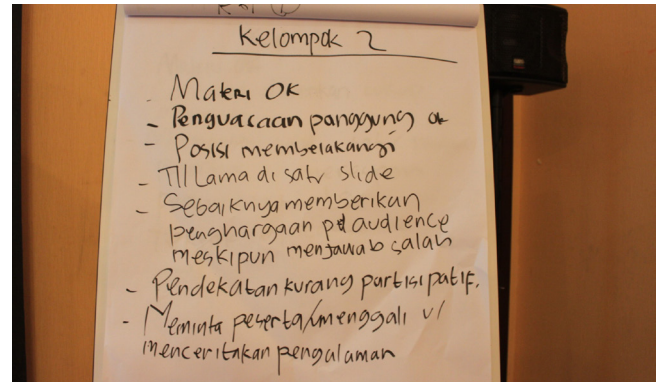 Kelompok 2
- Materi OK
- Penguasaan panggung ok
- Posisi membelakangi
- Tll Lama di satu slide
- Sebaiknya memberikan
penghargaan pd audience
meskipun menjawab salah
- Pendekatan kurang partisipatif.
- Meminta peserta/menggali u/
menceritakan pengalaman